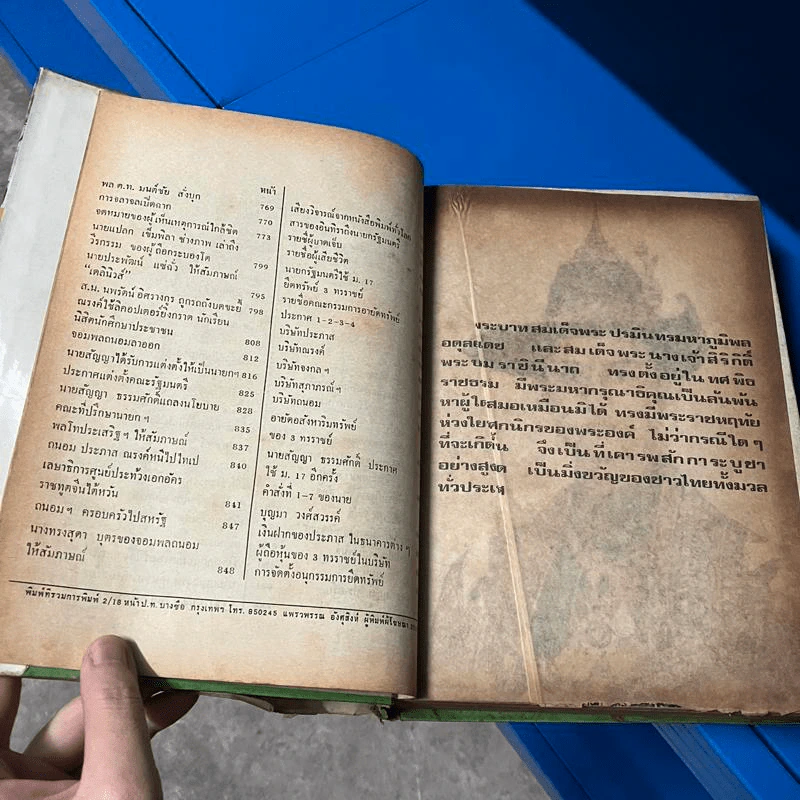 พล.ต.ท. มนต์ชัย สั่งบุก
หน้า
การจลาจลเบิดฉาก 769
จดหมายของผู้เห็นเหตุการณ์ใกล้ชิด 770
นายแปลก เข็มพิลา ช่างภาพ เล่าถึง 773
วีรกรรม ของผู้ถือกระบองโต
นายประพัฒน์ แซ่ฉั่ว ให้สัมภาษณ์ 799
"เดลินิวส์"
ส.น. นพรัตน์ อิศรางกูร ถูกรถถังบดขยี้ 795
ณรงค์ใช้ลิคอปเตอร์ยิงกราด นักเรียน 798
นิสิตนักศึกษาประชาชน
จอมพลถนอมลาออก 808
นายสัญญาได้รับการแต่งตั้งให้เป็นนายกฯ 812
ประกาศแต่งตั้งคณะรัฐมนตรี 816
นายสัญญา ธรรมศักดิ์แถลงนโยบาย 825
คณะที่ปรึกษานายกฯ 828
พลโทประเสริฐฯ ให้สัมภาษณ์ 835
ถนอม ประภาส ณรงค์หนีไปไทเป 837
เลขาธิการศูนย์ประท้วงเอกอัคร 840
ราชทูตจีนไต้หวัน
ถนอมฯ ครอบครัวไปสหรัฐ 841
นางทรงสุดา บุตรของจอมพลถนอม 847
ให้สัมภาษณ์ 848
เสียงวิจารณ์จากหนังสือพิมพ์ทั่วโลก
สารของอินทิราถึงนายกรัฐมนตรี
รายชื่อผู้บาดเจ็บ
รายชื่อผู้เสียชีวิต
นายกรัฐมนตรีใช้ ม. 17
ยึดทรัพย์ 3 ทรราชย์
รายชื่อคณะกรรมการอายัดทรัพย์
ประกาศ 1-2-3-4
บริษัทประภาส
บริษัทณรงค์
บริษัทจงกลฯ
บริษัทสุภาภรณ์ฯ
บริษัทถนอม
อายัดอสังหาริมทรัพย์
ของ 3 ทรราชย์
นายสัญญา ธรรมศักดิ์ ประกาศ
ใช้ ม. 17 อีกครั้ง
คำสั่งที่ 1-7 ของนาย
บุญมา วงศ์สวรรค์
เงินฝากของประภาส ในธนาคารต่าง ๆ
ผู้ถือหุ้นของ 3 ทรราชย์ในบริษัท
การจัดตั้งอนุกรรมการยึดทรัพย์
พิมพ์ที่รวมการพิมพ์ 2/18 หน้าป.ท. บางซื่อ กรุงเทพฯ โทร. 850245 แพรวพรรณ อังศุสิงห์ ผู้พิมพ์ผู้โฆษณา
งระบาทสมเด็จพระปรมินทรมหาภูมิพล
อดุลยเดช และสมเด็จพระนางเจ้าสิริกิติ์
พระบมราชินีนาถ ทรงตั้งอยู่ในทศพิธ
ราชธรรม มีพระมหากรุณาธิคุณเป็นล้นพ้น
หาผู้ใดเสมอเหมือนมิได้ ทรงมีพระราชหฤทัย
ห่วงใยพสกนิกรของพระองค์ ไม่ว่ากรณีใดๆ
ที่จะเกิดขึ้น จึงเป็นที่เคารพสักการะบูชา
อย่างสูงสุด เป็นมิ่งขวัญของชาวไทยทั้งมวล
ทั่วประเท